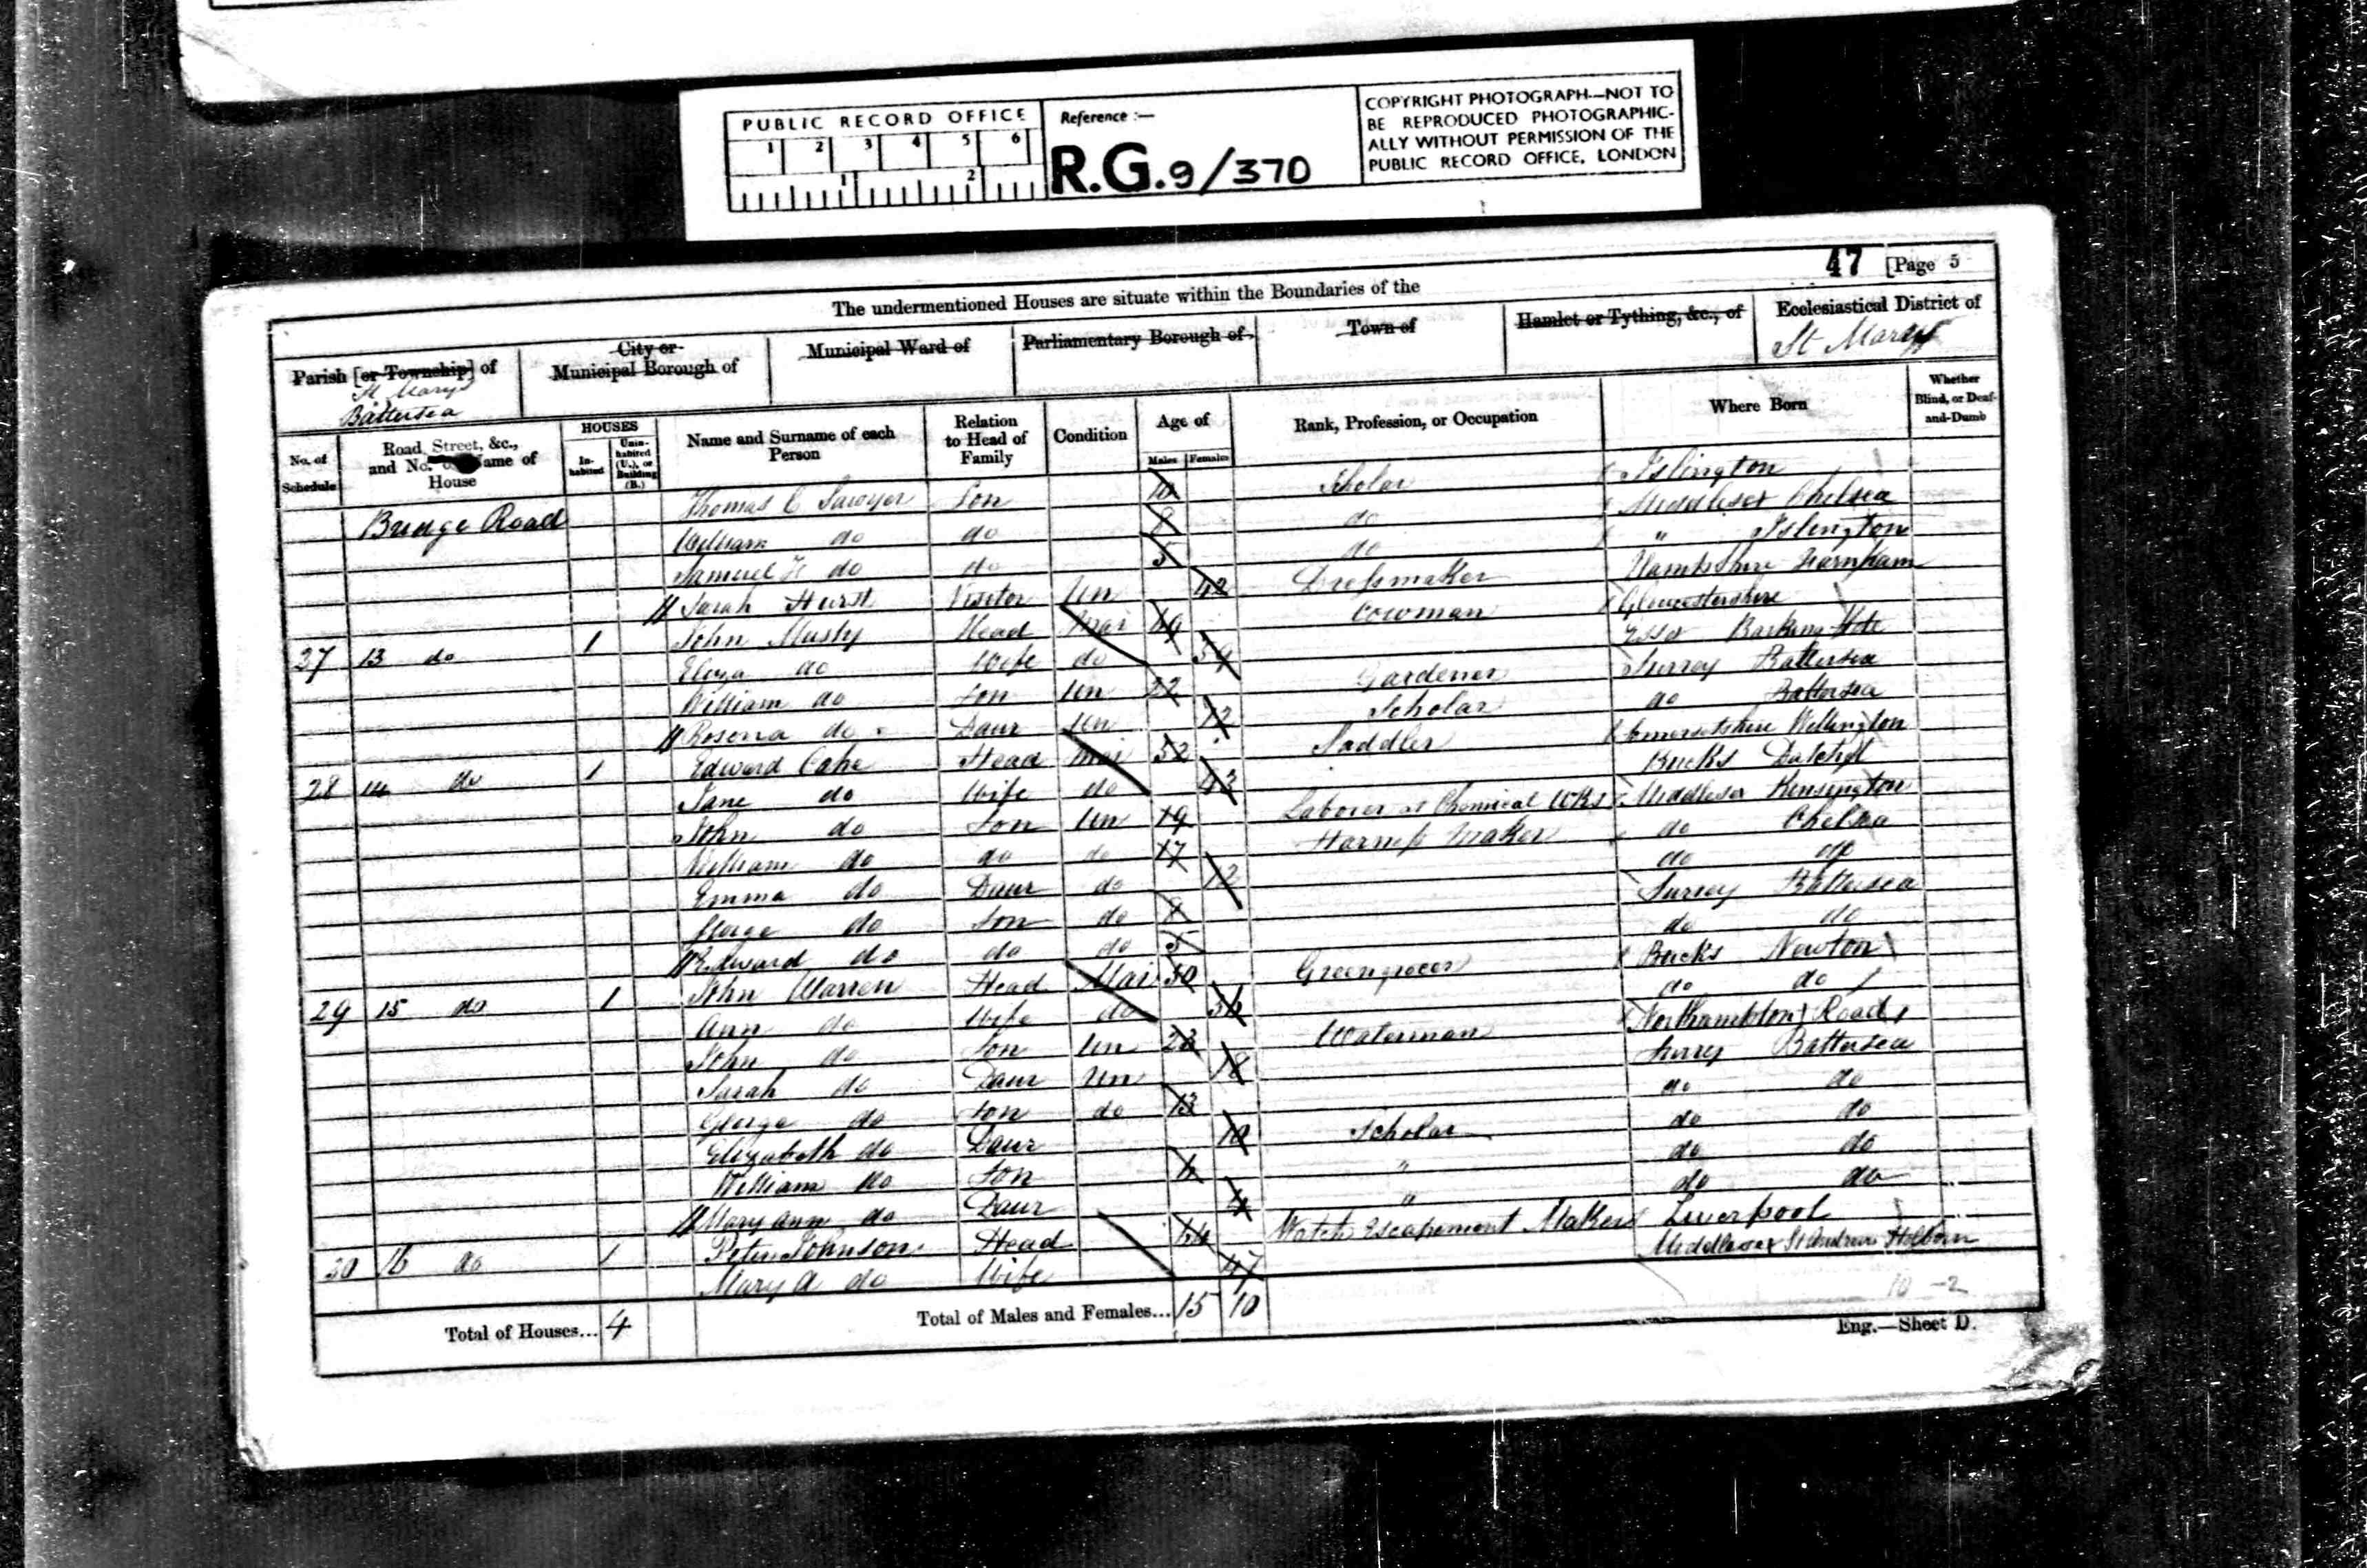 PUBLIC RECORD OFFICE
1 2 3 4 5 6
1 2
Reference :—
R.G. 9/370
COPYRIGHT PHOTOGRAPH—NOT TO
BE REPRODUCED PHOTOGRAPHIC-
ALLY WITHOUT PERMISSION OF THE
PUBLIC RECORD OFFICE, LONDON
47 [Page 5
The undermentioned Houses are situate within the Boundaries of the
Parish [or Township] of
St Marys
Battersea
City or
Municipal Borough of
Municipal Ward of
Parliamentary Borough of
Town of
Hamlet or Tything, &c., of
Ecclesiastical District of
St Marys
No. of Schedule
Road, Street, &c., and No. or Name of House
HOUSES
Inhabited
Uninhabited (U.), or Building (B.)
Name and Surname of each Person
Relation to Head of Family
Condition
Age of
Males Females
Rank, Profession, or Occupation
Where Born
Whether Blind, or Deaf-and-Dumb
Bridge Road Thomas C Sawyer Son 10 Scholar Islington
William do do 8 do Middlesex Chelsea
Samuel do do 5 do " Islington
Sarah Hurst Visitor Un 42 Dressmaker Hampshire Farnham
27 13 do 1 John Mushy Head Mar Cowman Gloucestershire
Eliza do Wife do 59 Essex Barking
William do Son Un 22 Gardener Surrey Battersea
Rosena do Daur Un 12 Scholar do Battersea
28 14 do 1 Edward Cake Head Mar 52 Saddler Somersetshire Wellington
Jane do Wife do 43 Bucks Datchet
John do Son Un 19 Laborer at Chemical Wks Middlesex Kensington
William do do do 17 Harness Maker do Chelsea
Emma do Daur do 12 do do
George do Son do 8 Surrey Battersea
Edward do do do 5 do do
29 15 do 1 John Warren Head Mar 50 Greengrocer Bucks Newton
Ann do Wife do do do
John do Son Un 23 Waterman Northampton Road
Sarah do Daur Un 18 Surrey Battersea
George do Son do 13 do do
Elizabeth do Daur 10 Scholar do do
William do Son 6 " do do
Mary Ann do Daur 4 " do do
30 16 do 1 Peter Johnson Head 64 Watch Escapement Maker Liverpool
Mary A do Wife 47 Middlesex St Andrews Holborn
10 -2
Total of Houses... 4
Total of Males and Females... 15 10
Eng.—Sheet D.